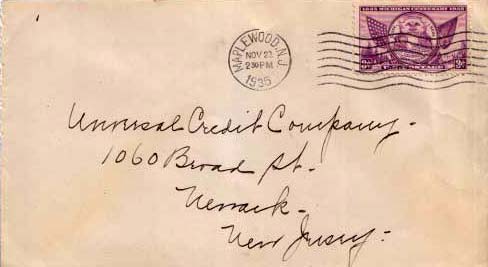 1835 MICHIGAN CENTENARY 1935
MAPLEWOOD, N.J.
NOV 22
2 30 PM
1935
3¢ 3¢
Universal Credit Company-
1060 Broad St.
Newark-
New Jersey-